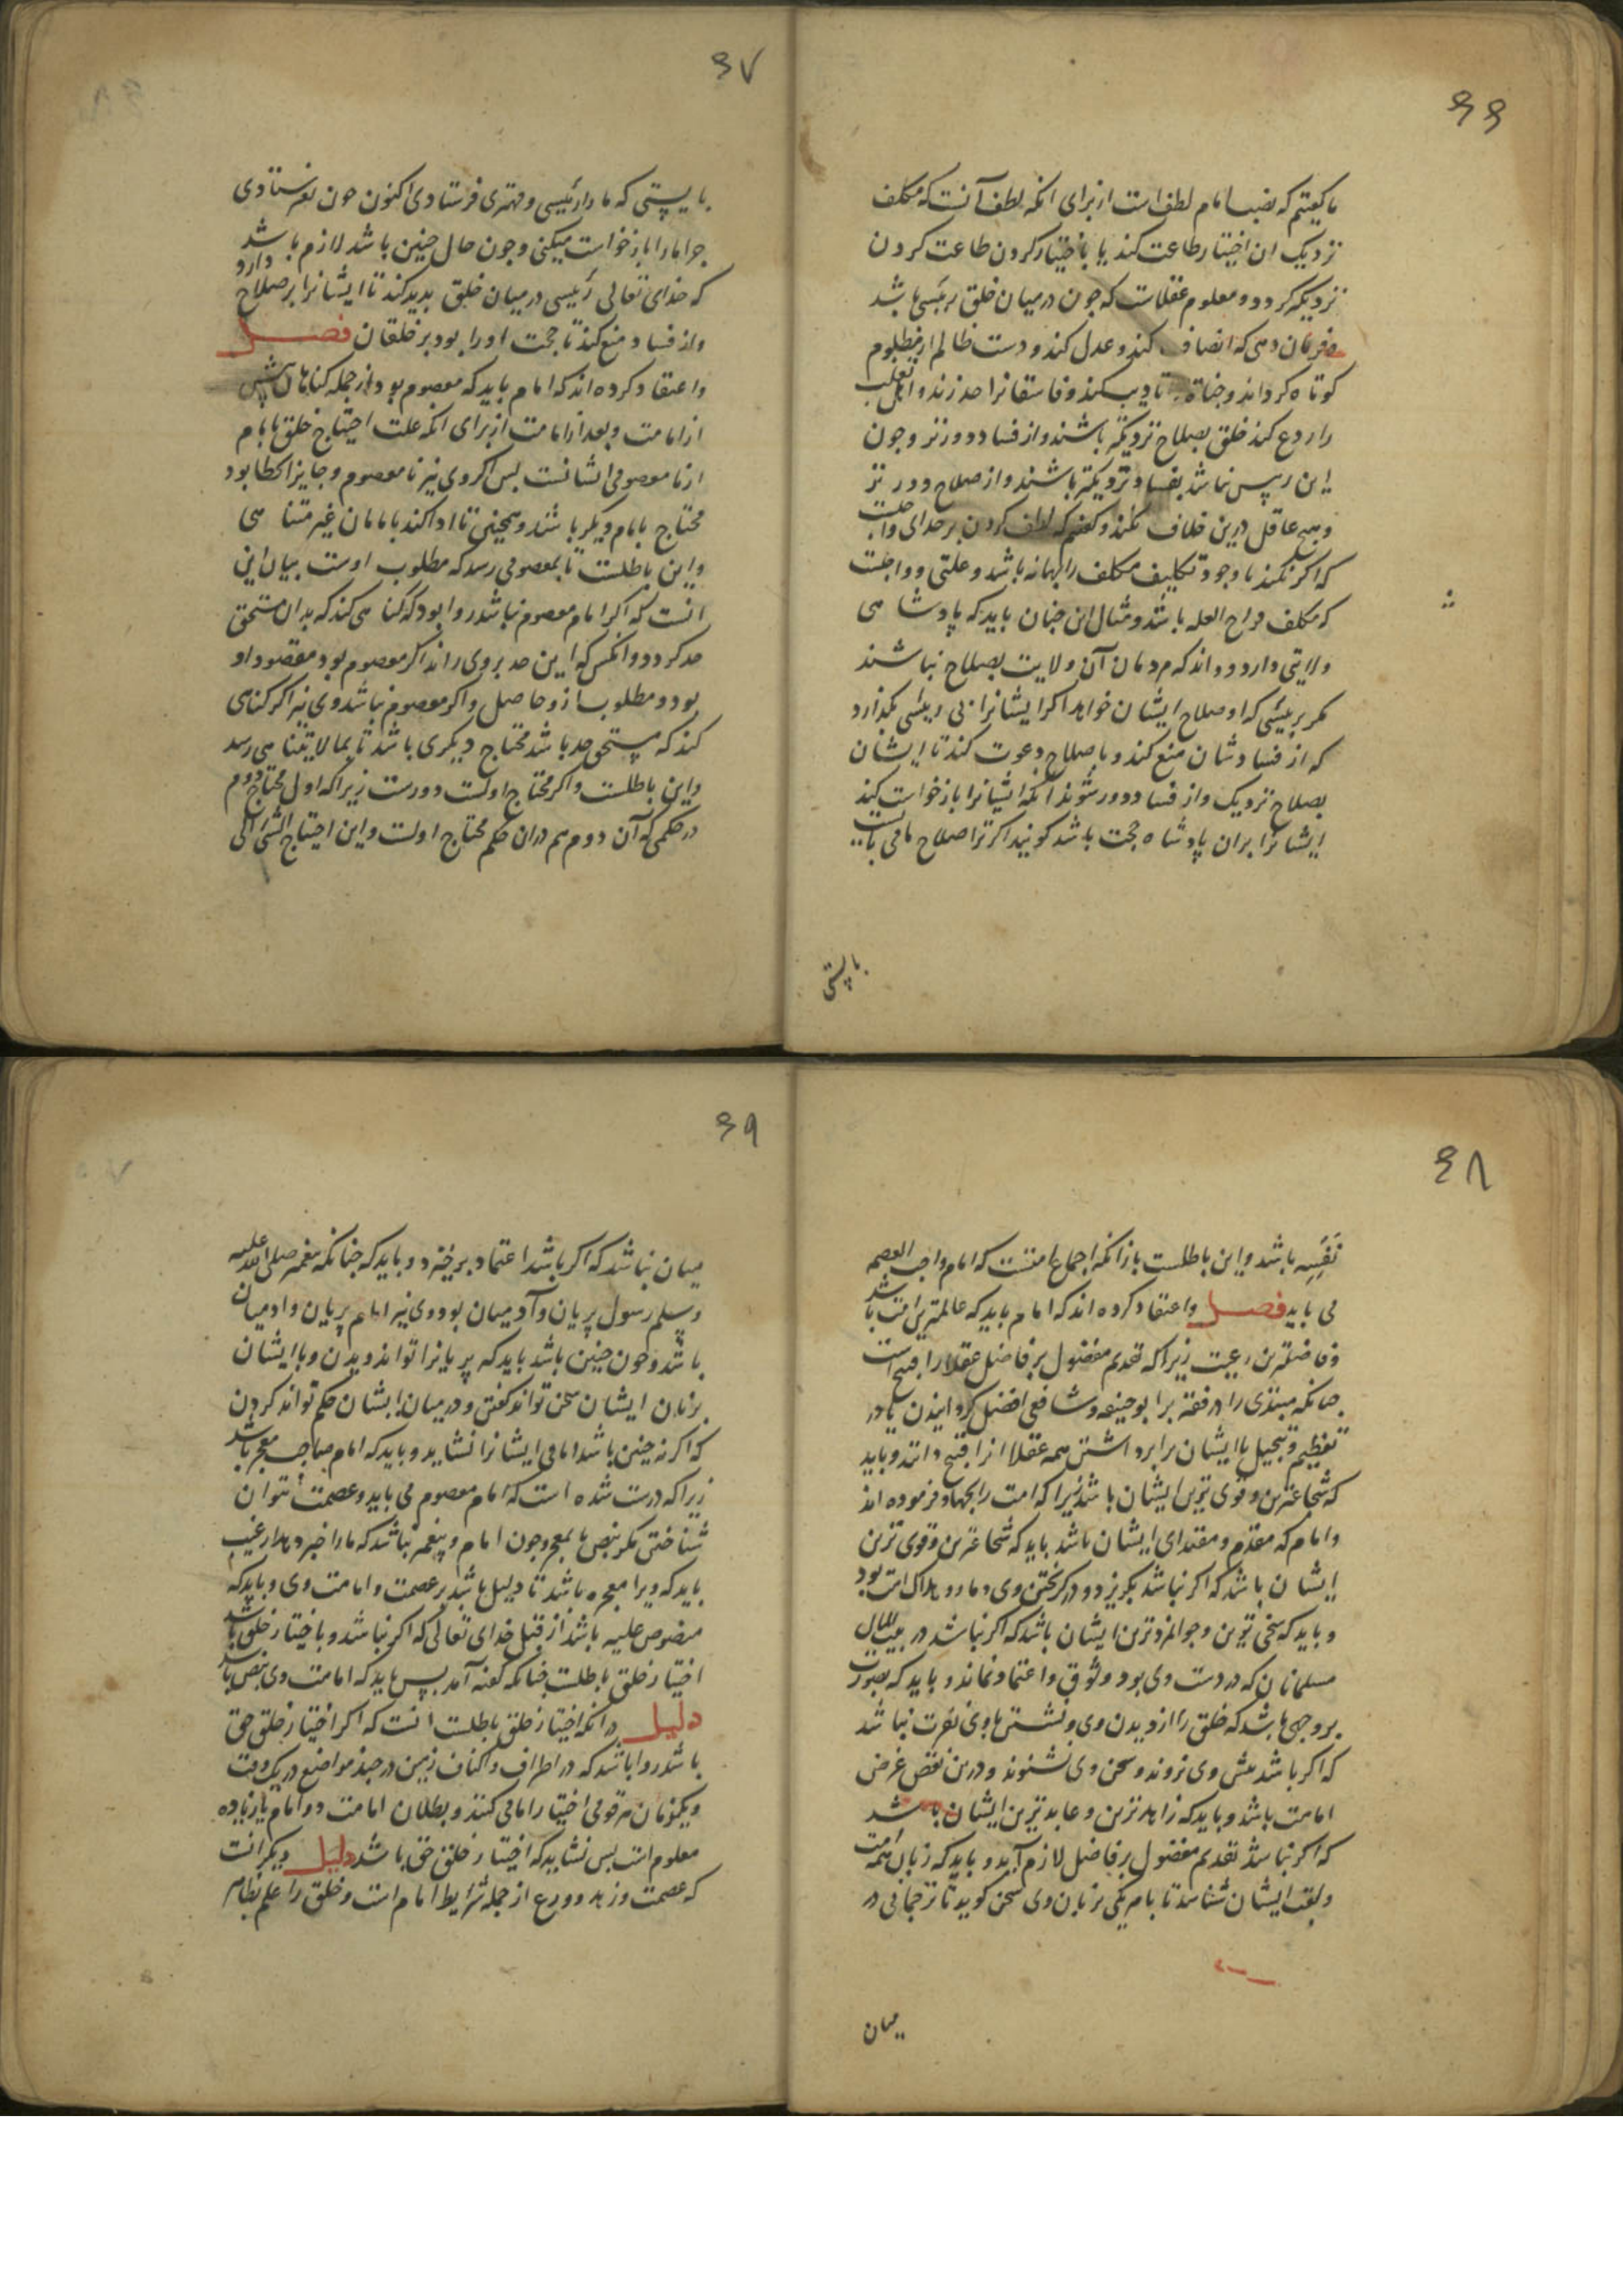 ۶۶
ما کفتیم که نصب امام لطف است از برای انکه لطف آنست که مکلف
نزدیک ان اختیار طاعت کند یا باختیار کردن طاعت کردن
نزدیکتر کردد و معلوم عقلاست که چون در میان خلق رئیسی باشد
و فرمان دهی که انصاف کند و عدل کند و دست ظالم از مظلوم
کوتاه کرداند و جناة تادیب کند و فاسقانرا حد زند و اهل تغلب
را ردع کند خلق بصلاح نزدیکتر باشند و از فساد دورتر و چون
این رییس نباشد بفساد نزدیکتر باشند و از صلاح دورتر
و هیچ عاقل درین خلاف نکند و کفتیم که لطف کردن بر خدای واجبست
که اکر نکند با وجود تکلیف مکلف را بهانه باشد و علتی و واجبست
که مکلف مزاح العله باشد و مثال این چنان باید که پادشاهی
ولایتی دارد و داند که مردمان آن ولایت بصلاح نباشند
مکر برییسی که او صلاح ایشان خواهد اکر ایشانرا بی رییسی بکذارد
که از فسادشان منع کند و با صلاح دعوت کند تا ایشان
بصلاح نزدیک و از فساد دور شوند انکه ایشانرا بازخواست کند
ایشانرا بران پادشاه حجت باشد کویند اکر ترا صلاح ما می بایست
بایستی
۶۷
بایستی که ما را رئیسی و مهتری فرستادی اکنون چون نفرستادی
چرا ما را بازخواست میکنی و چون حال چنین باشد لازم باشد
که خدای تعالی رئیسی در میان خلق بدید کند تا ایشانرا بر صلاح دارد
و از فساد منع کند تا حجت او را بود بر خلقان فصل
و اعتقاد کرده اند که امام باید که معصوم بود از جمله کناهان پیش
از امامت و بعد از امامت از برای انکه علت احتیاج خلق بامام
از نامعصومی ایشانست پس اکر وی نیز نامعصوم و جایز الخطا بود
محتاج بامام دیکر باشد و همچنین تا ادا کند بامامان غیر متناهی
و این باطلست تا بمعصومی رسد که مطلوب اوست بیان این
انست که اکر امام معصوم نباشد روا بود که کناهی کند که بدان مستحق
حد کردد و انکس که این حد بر وی راند اکر معصوم بود مقصود او
بود و مطلوب ازو حاصل و اکر معصوم نباشد وی نیز اکر کناهی
کند که مستحق حد باشد محتاج دیکری باشد تا بما لا یتناهی رسد
و این باطلست و اکر محتاج اولست دورست زیرا که اول محتاج دوم
در حکمی که آن دوم هم دران حکم محتاج اولست و این احتیاج الشئ الی
۶۸
نَفسِه باشد و این باطلست باز انکه اجماع امتست که امام واجب العصمه
می باید فصل و اعتقاد کرده اند که امام باید که عالمترین امت باشد
و فاضلترین رعیت زیرا که تقدیم مفضول بر فاضل عقلا را قبیح است
چنانکه مبتدی را در فقه بر ابو حنیفه و شافعی افضل کردانیدن یا در
تعظیم و تبجیل با ایشان برابر داشتن همه عقلا انرا قبیح دانند و باید
که شجاعترین و قوی ترین ایشان باشد زیرا که امت را بجهاد فرموده اند
و امام که مقدم و مقتدای ایشان باشد باید که شجاعترین و قوی ترین
ایشان باشد که اکر نباشد بکریزد و در کریختن وی دمار و هلاک امت بود
و باید که سخی ترین و جوانمردترین ایشان باشد که اکر نباشد در بیت المال
مسلمانان که در دست وی بود وثوق و اعتماد نماند و باید که بصورت
بر وجهی باشد که خلق را از دیدن وی و نشستن با وی نفرت نباشد
که اکر باشد پیش وی نروند و سخن وی نشنوند و درین نقض غرض
امامت باشد و باید که زاهدترین و عابدترین ایشان باشد
که اکر نباشد تقدیم مفضول بر فاضل لازم آید و باید که زبان همه امت
و لغت ایشان شناسد تا با هر یکی بزبان وی سخن کوید تا ترجمانی در
میان
۶۹
میان نباشد که اکر باشد اعتماد برخیزد و باید که چنانکه پیغمبر صلی الله علیه
و سلم رسول پریان و آدمیان بود وی نیز امام پریان و ادمیان
باشد و چون چنین باشد باید که پریانرا تواند دیدن و با ایشان
بزبان ایشان سخن تواند کفتن و در میان ایشان حکم تواند کردن
که اکر نه چنین باشد امامی ایشانرا نشاید و باید که امام صاحب معجز باشد
زیرا که درست شده است که امام معصوم می باید و عصمت نتوان
شناختن مکر بنص یا بمعجز و چون امام و پیغمبر نباشد که ما را خبر دهد از غیب
باید که ویرا معجزه باشد تا دلیل باشد بر عصمت و امامت وی و باید که
منصوص علیه باشد از قبل خدای تعالی که اکر نباشد و باختیار خلق باشد
اختیار خلق باطلست چنانکه کفته آمد پس باید که امامت وی بنص باشد
دلیل در انکه اختیار خلق باطلست انست که اکر اختیار خلق حق
باشد روا باشد که در اطراف و اکناف زمین در چند مواضع در یک وقت
و یکزمان هر قومی اختیار امامی کنند و بطلان امامت دو امام یا زیاده
معلوم است پس نشاید که اختیار خلق حق باشد دلیل دیکر انست
که عصمت و زهد و ورع از جمله شرایط امام است و خلق را علم بظاهر